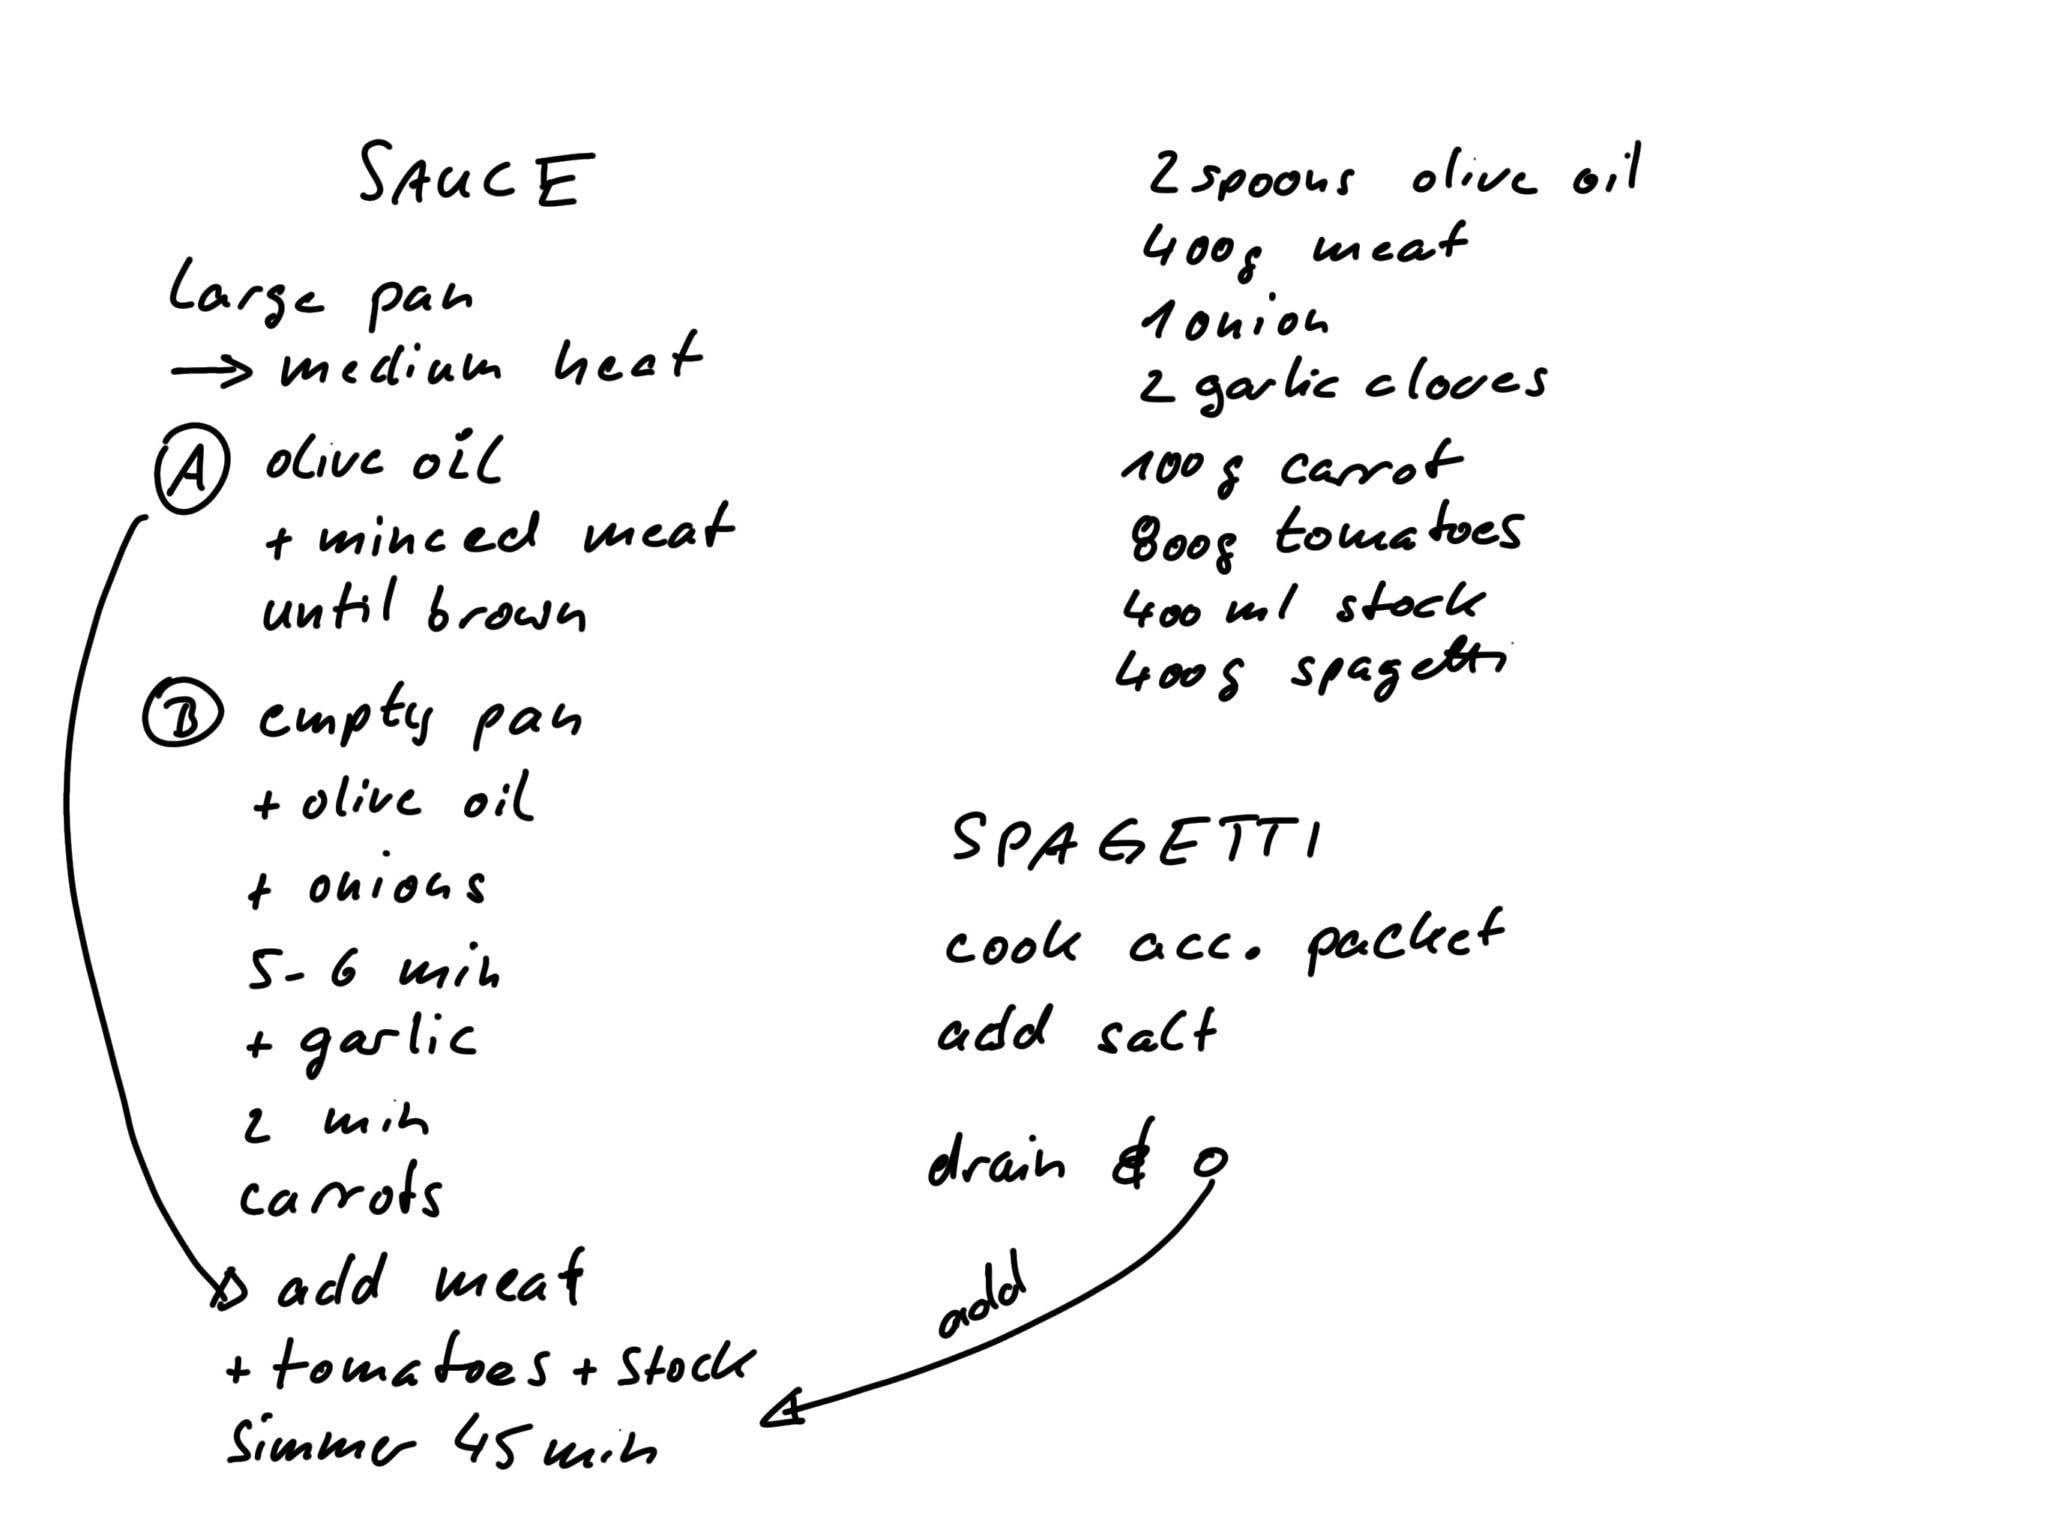 SAUCE
Large pan
→ medium heat
A olive oil
+ minced meat
until brown
B empty pan
+ olive oil
+ onions
5-6 min
+ garlic
2 min
carrots
add meat
+ tomatoes + stock
simmer 45 min
2 spoons olive oil
400g meat
1 onion
2 garlic cloves
100g carrot
800g tomatoes
400 ml stock
400g spagetti
SPAGETTI
cook acc. packet
add salt
drain &
add